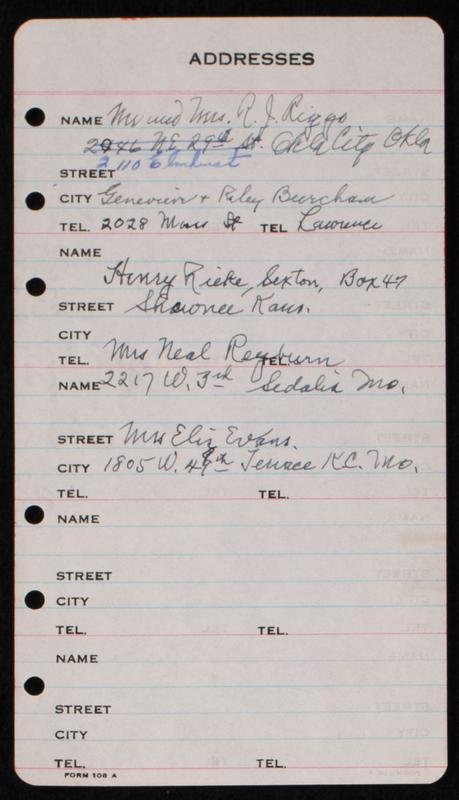 ADDRESSES
NAME Mr and Mrs. R. J. Riggs
2946 N.E. 29th St. Okla City Okla
2110 Elmhurst
STREET
CITY Genevieve + Riley Burcham
TEL. 2028 Mass St TEL Lawrence
NAME
Henry Rieke, Sexton, Box 47
STREET Shawnee Kans.
CITY
TEL. Mrs Neal Reyburn TEL.
NAME 2217 W. 3rd Sedalia Mo.
STREET Mrs Eliz Evans.
CITY 1805 W. 49th Terrace K.C. Mo.
TEL. TEL.
NAME
STREET
CITY
TEL. TEL.
NAME
STREET
CITY
TEL. TEL.
FORM 108 A